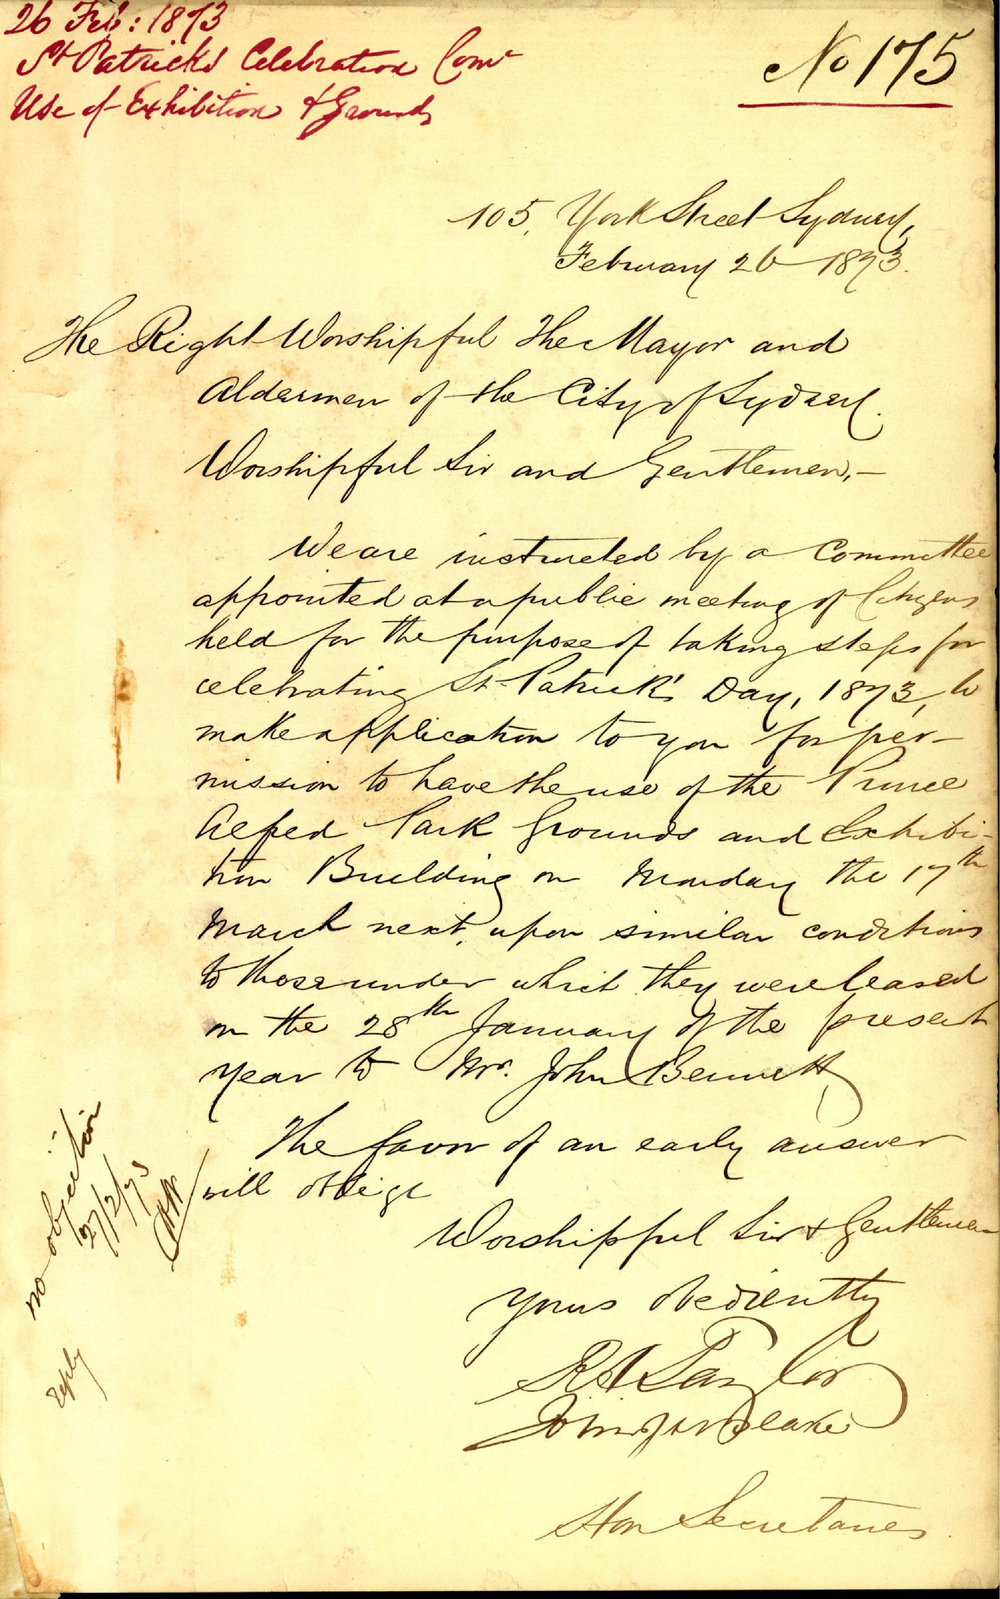 26 Feb: 1873
St Patricks Celebration Com
Use of Exhibition & Grounds
No 175
105, York Street Sydney,
February 26 1873.
The Right Worshipful The Mayor and
Aldermen of the City of Sydney.
Worshipful Sir and Gentlemen,—
We are instructed by a Committee
appointed at a public meeting of Citizens
held for the purpose of taking steps for
celebrating St. Patrick's Day, 1873, to
make application to you for per-
mission to have the use of the Prince
Alfred Park Grounds and Exhibi-
tion Building on Monday the 17th
March next, upon similar conditions
to those under which they were leased
on the 28th January of the present
year to Mr. John Bennett
The favor of an early answer
will oblige
Worshipful Sir & Gentlemen
Yours obediently
R A Taylor
John Blake
Hon Secretaries
no objection
27/2/73
reply